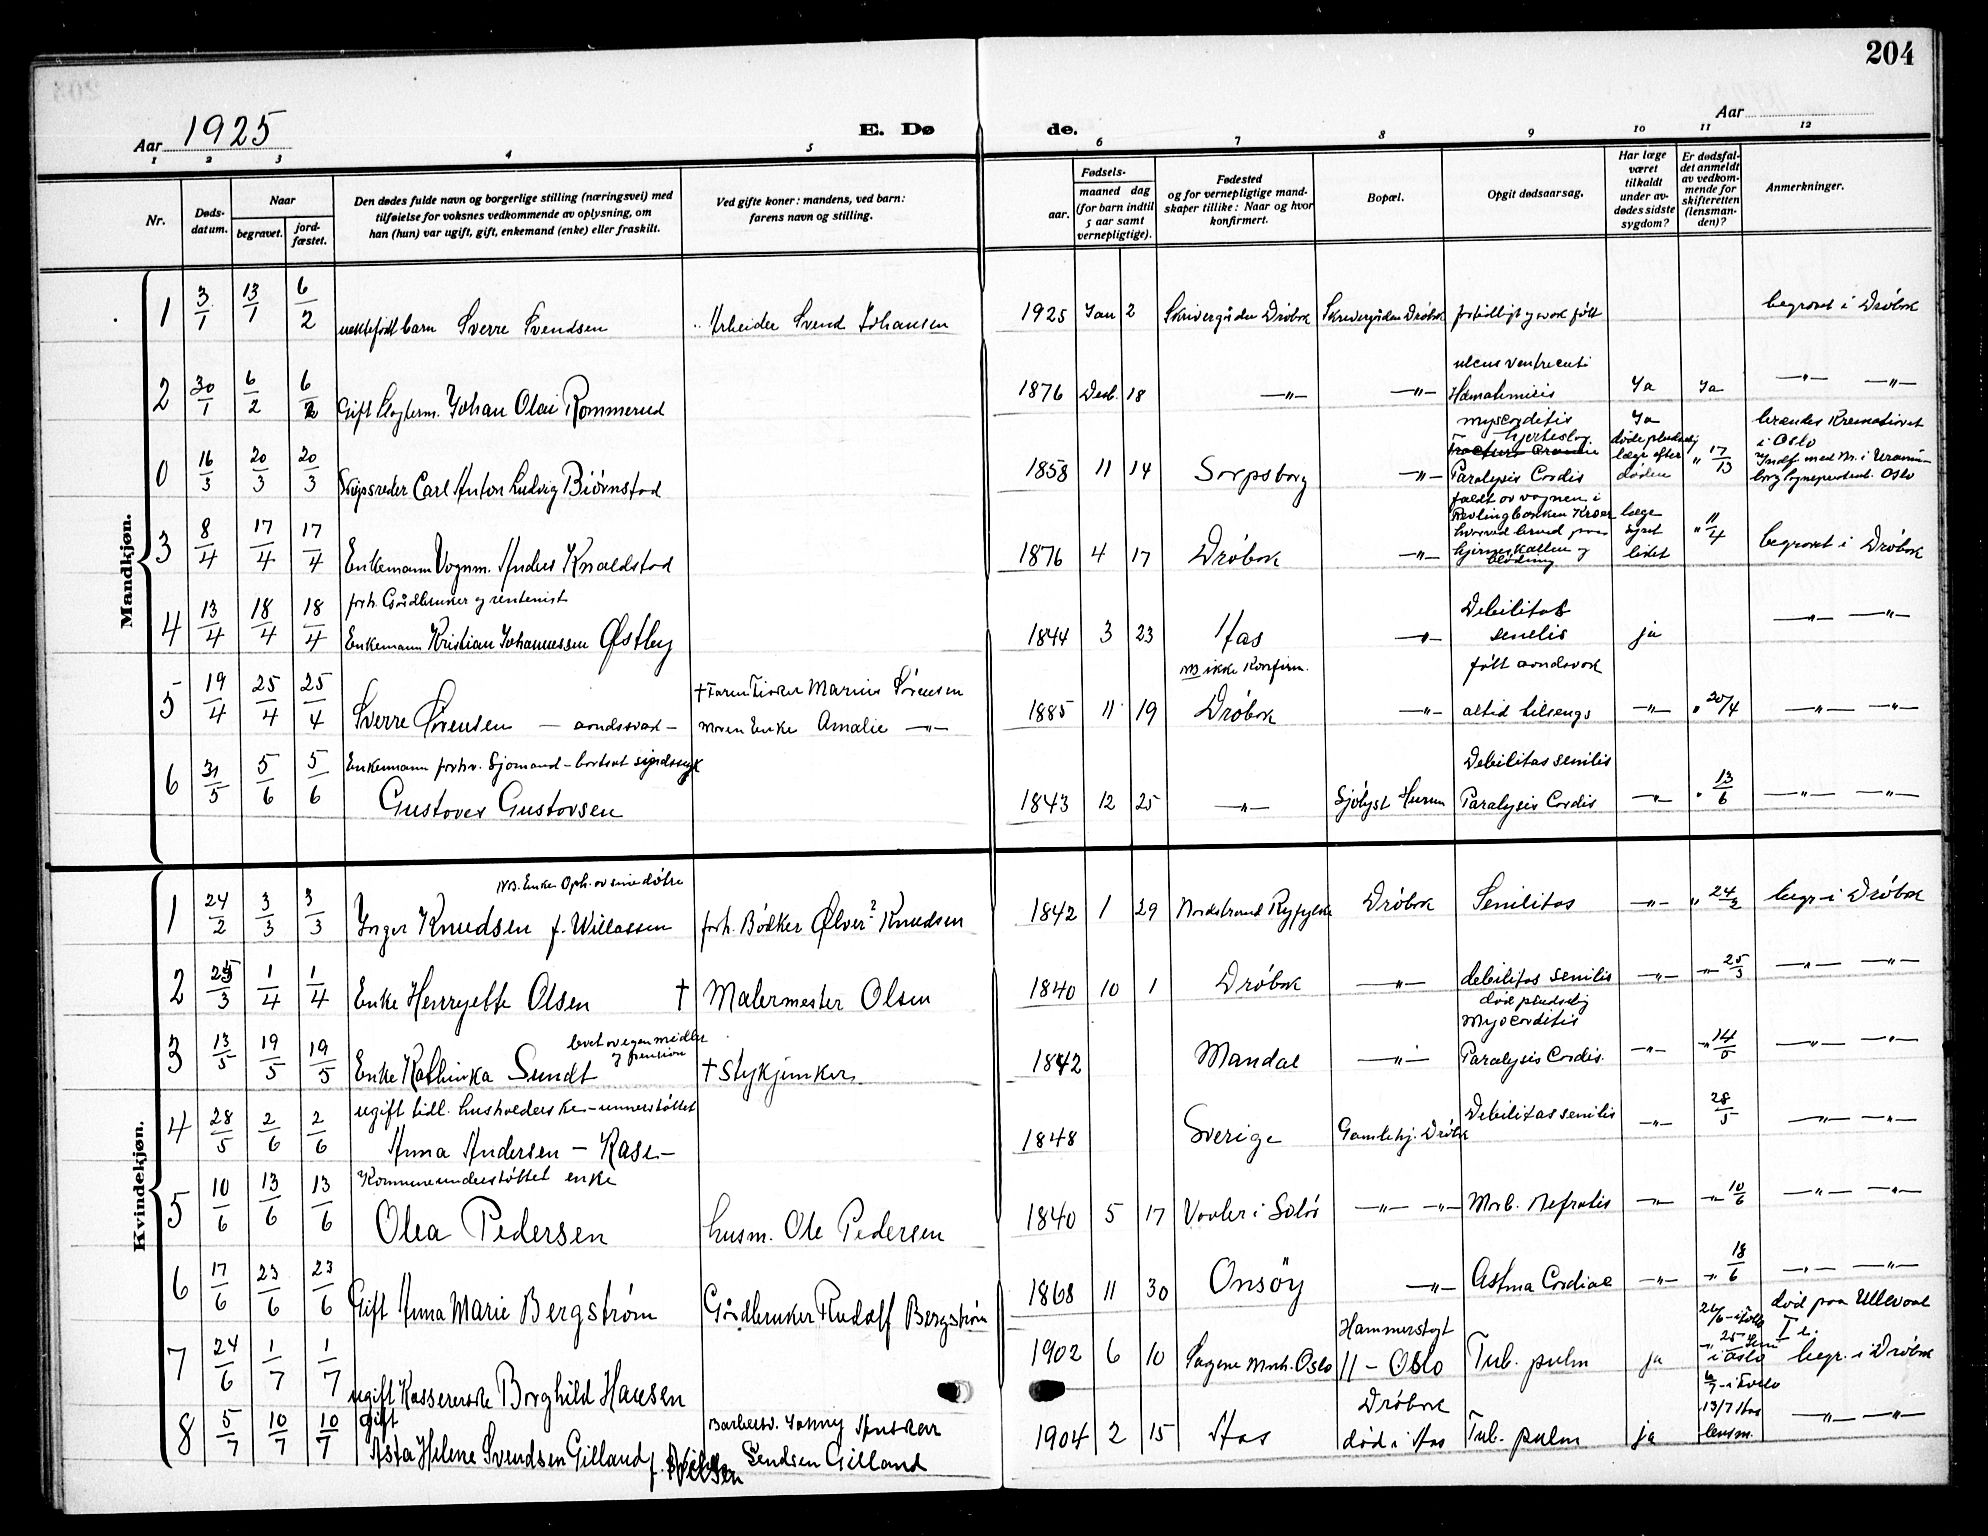 204
Aar 1925
E. Dø de.
Aar
1 2 3 4 5 6 7 8 9 10 11 12
Nr.
Døds-
datum.
Naar
begravet.
jord-
fæstet.
Den dødes fulde navn og borgerlige stilling (næringsvei) med
tilføielse for voksnes vedkommende av oplysning, om
han (hun) var ugift, gift, enkemand (enke) eller fraskilt.
Ved gifte koner: mandens, ved barn:
farens navn og stilling.
Fødsels-
aar.
maaned dag
(for barn indtil
5 aar samt
vernepligtige).
Fødested
og for vernepligtige mand-
skaper tillike: Naar og hvor
konfirmert.
Bopæl.
Opgit dødsaarsag.
Har læge
været
tilkaldt
under av-
dødes sidste
sygdom?
Er dødsfal-
det anmeldt
av vedkom-
mende for
skifteretten
(lensman-
den)?
Anmerkninger.
Mandkjøn.
1 3/1 13/1 6/2 barn Sverre Svendsen Arbeider Svend Johansen 1925 Jan 2 Skrivergården Drøbak Skrivergården Drøbak født begravet i Drøbak
ulcus ventriculi
2 30/1 6/2 6/2 Gift Johan Olai Rommerud 1876 Desb. 18 —"— —"— Hæmatemisis Ja Ja —"— —"—
myocorditis Ja
hjerteslag døde pludselig
i Oslo
0 16/3 20/3 20/3 Skipsreder Carl Anton Ludvig Biørnstad 1858 11 14 Sarpsborg —"— Paralysis Cordis læge efter døden " 17/13
faldt av vognen i
3 8/4 17/4 17/4 Enkemann Vognm. Anders Knaldstad 1876 4 17 Drøbak —"— hjerneskallen og blødning læge synet liket " 11/4 begravet i Drøbak
forh. Gårdbruker og rentenist
4 13/4 18/4 18/4 Enkemann Kristian Johannessen Østby 1844 3 23 Aas —"— Debilitas senelis ja —"— —"—
NB ikke Konfirm. født aandsvak
5 19/4 25/4 25/4 Sverre Sørensen — aandssvak — † Faren Fisker Marius Sørensen
moren Enke Amalie —"— 1885 11 19 Drøbak —"— altid tilsengs —"— " 20/4 —"— —"—
Enkemann forhv. Sjømand – bortsat sindssyk Debilitas senilis
6 31/5 5/6 5/6 Gustaver Gustavsen 1843 12 25 —"— Sjølyst Hurum Paralysis Cordis —"— " 13/6 —"— —"—
Kvindekjøn.
NB. Enke Oph. av sine døtre
1 24/2 3/3 3/3 Inger Knudsen f. Willassen forh. Bødker Ølver? Knudsen 1842 1 29 Nordstrand Ryfylke Drøbak Senilitas —"— " 24/2 begr. i Drøbak
2 25/3 1/4 1/4 Enke Henryette Olsen † Malermester Olsen 1840 10 1 Drøbak —"— debilitas senilis —"— —"— 25/3 —"— —"—
død pludselig
levet av egen midler og pension Myocorditis
3 13/5 19/5 19/5 Enke Kathinka Sundt † Stykjunker 1842 Mandal —"— Paralysis Cordis. —"— " 14/5 —"— —"—
ugift tidl. husholderske – unnerstøttet
4 28/5 2/6 2/6 Anna Andersen – Kase – 1848 Sverige Gamlehj. Drøbk Debilitas senilis —"— 28/5 —"— —"—
Kommuneunderstøttet enke
5 10/6 13/6 13/6 Olea Pedersen husm. Ole Pedersen 1840 5 17 Vaaler i Solør —"— —"— Morb. Nefrotis —"— —"— 10/6 —"— —"—
6 17/6 23/6 23/6 Gift Anna Marie Bergstrøm Gårdbruker Rudolf Bergstrøm 1868 11 30 Onsøy —"— Astma Cordiae —"— —"— 18/6 —"— —"—
Hammerstgt død paa Ullevaal
7 24/6 1/7 1/7 ugift Kassererske Borghild Hansen 1902 6 10 Sagene Mnh. Oslo 11 – Oslo Tub. pulm ja i Oslo begr. i Drøbak
Gift Barbersv. Johny Drøbak 13/7 Aas
8 5/7 10/7 10/7 Asta Helene Svendsen Gilland f. Nilsen Sendsen Gilland 1904 2 15 Aas død i Aas Tub. pulm ja lensm. —"— —"—